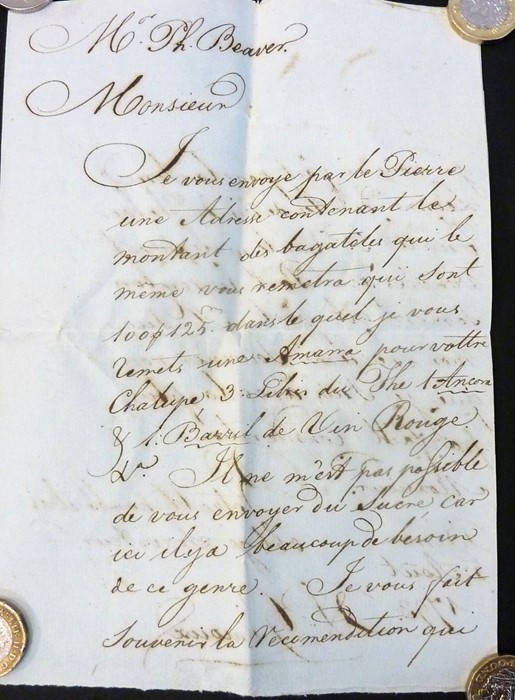 Mr. Ph. Beaver.
Monsieur
Je vous envoye par le Pierre
une Adresse contenant le
montant des bagatèles qui le
même vous remetra qui sont
100$125rs. dans le quel je vous
remets une Amarra pour vottre
Chalupe 3. du The 1 Ancora
& 1. Barril de Vin Rouge.
Il ne m'est pas possible
de vous envoyer du Sucre car
ici il ÿ a beaucoup de besoin
de ce genre. Je vous fait
souvenir la recomendition qui